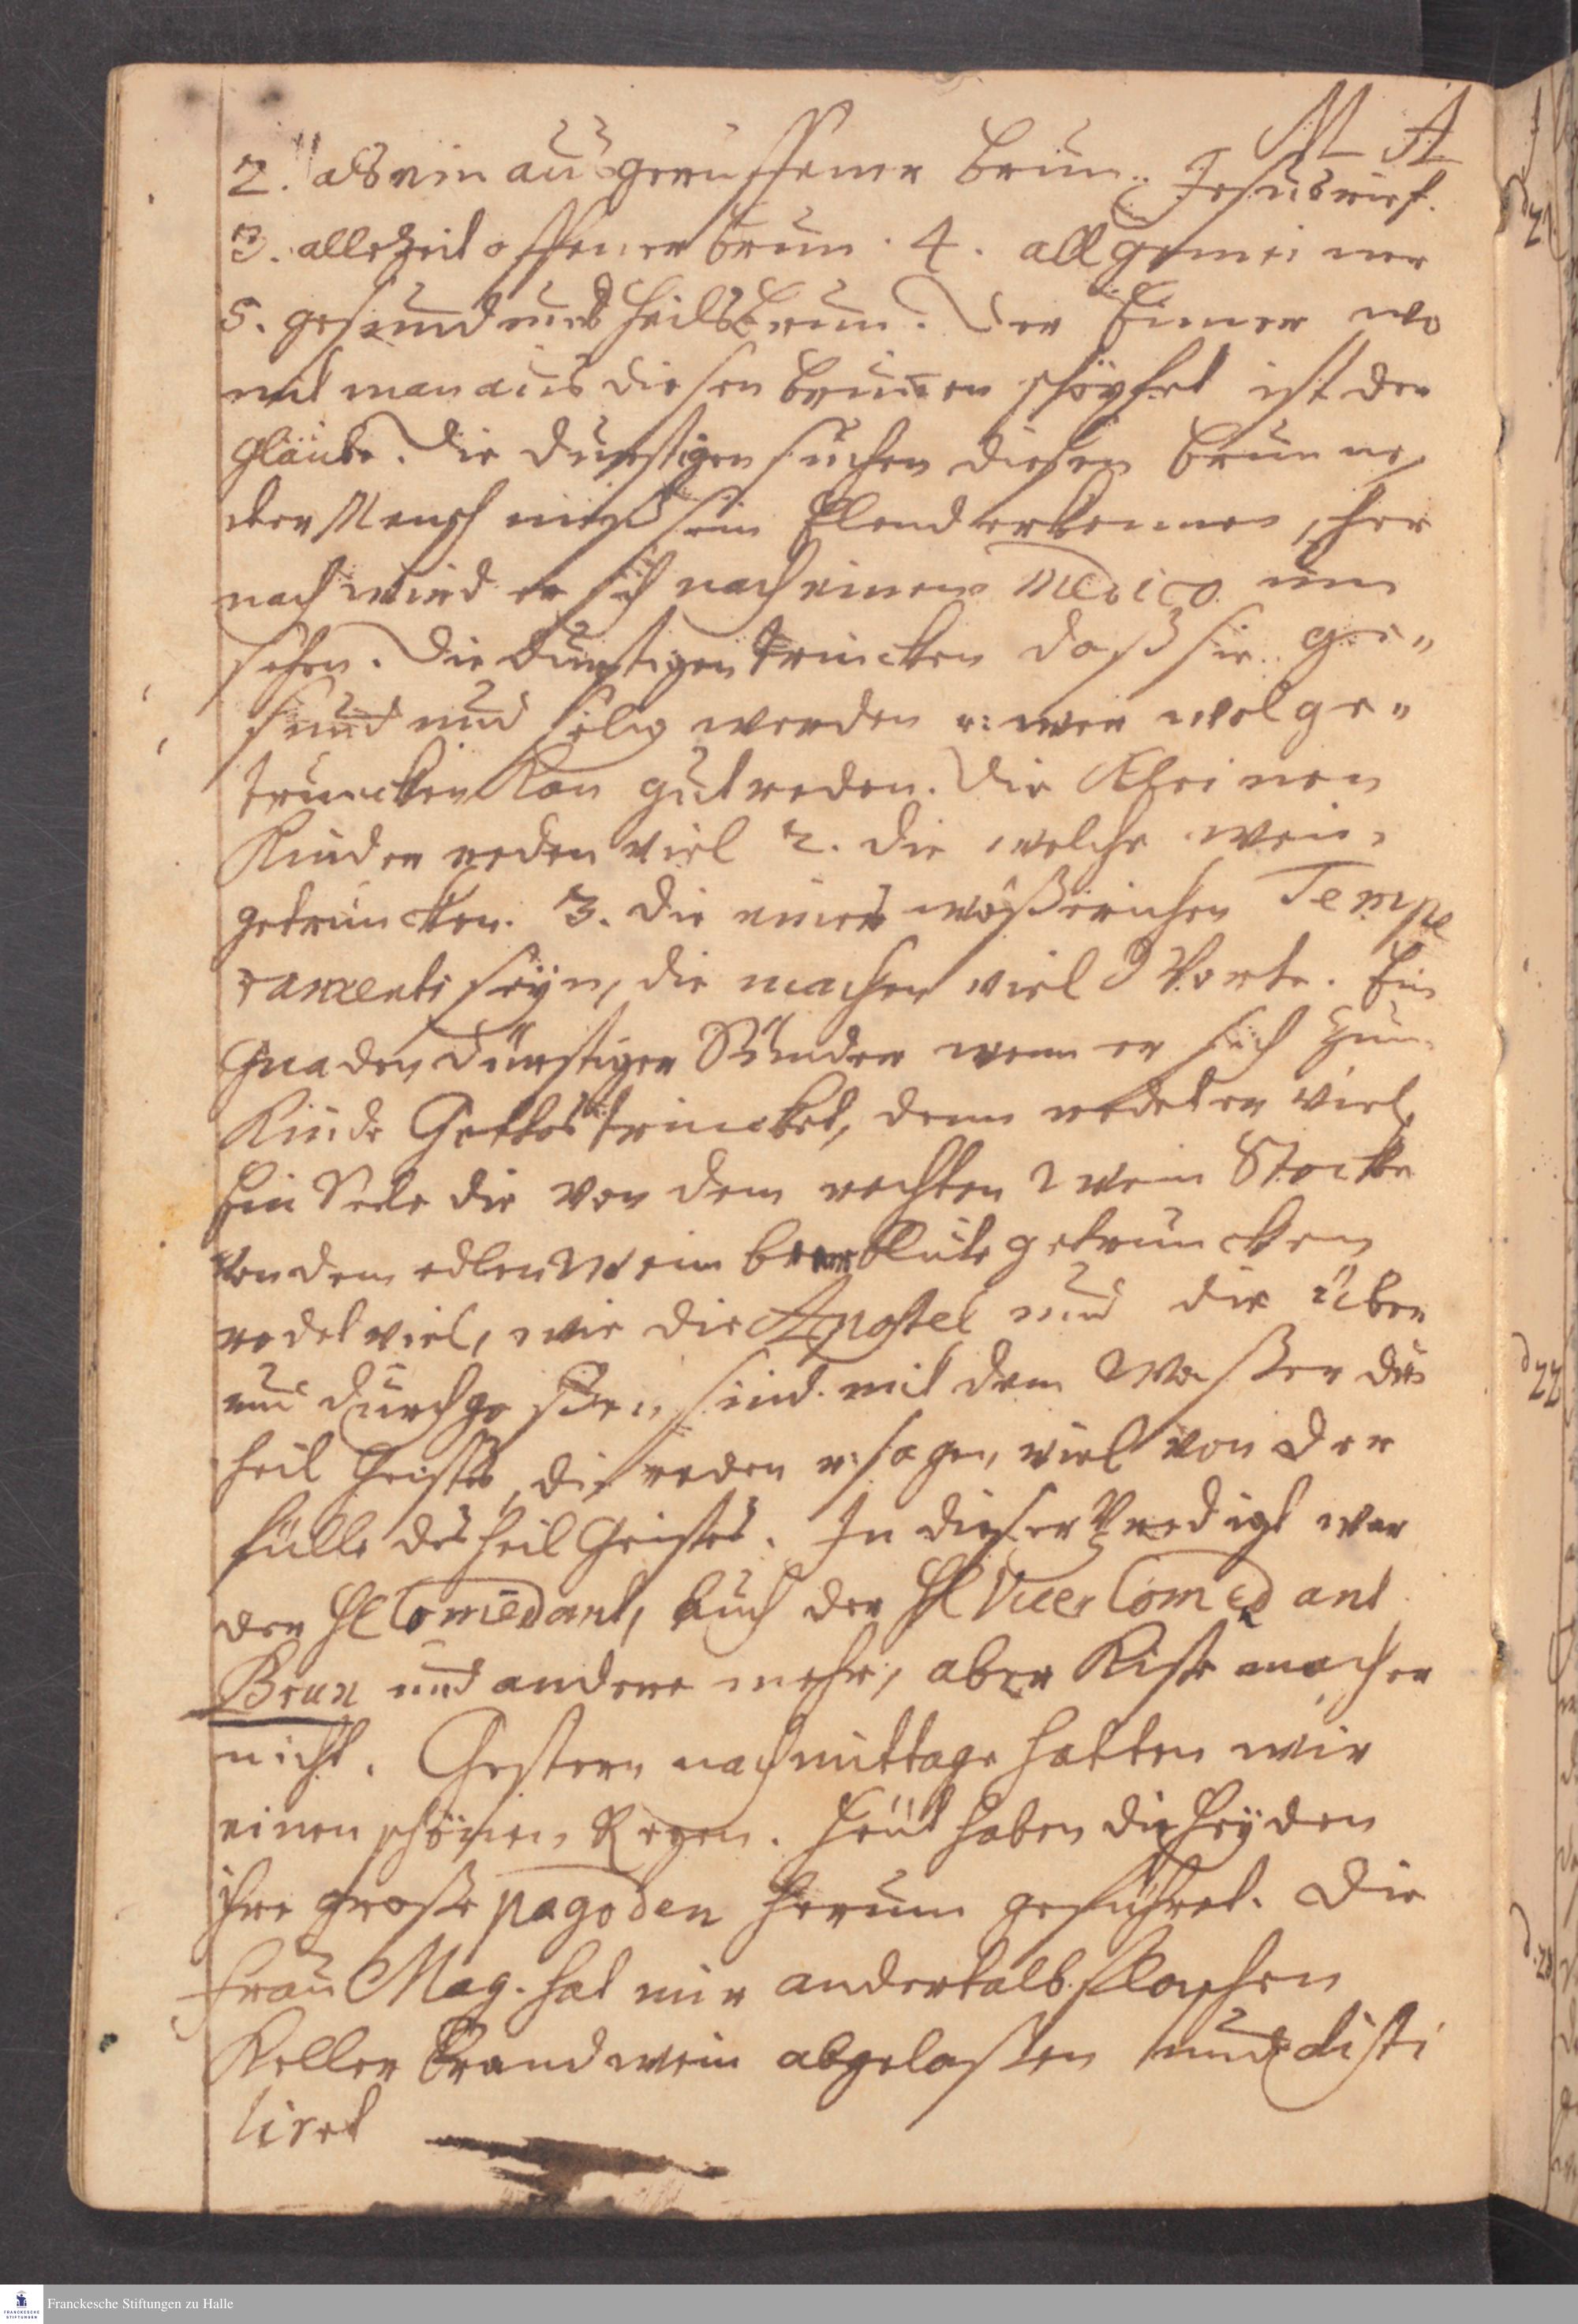 M A
2. als ein ausgeruffener Brun. Jesus rief.
3. allezeit offener Brun. 4. allgemeiner
5. gesund und Heilsbrun. Der Eimer wo
mit man aus diesen Brunnen schöpfet ist der
Glaube. Die durstigen suchen diesen Brunne,
der Mensch muß sein Elend erkennen, her
nach wird er sich nach einem Medico um
sehen. Die durstigen trincken daß sie ge„
sund und selig werden u: wer wol ge„
truncken kan gut reden. Die Kleinen
Kinder reden viel 2. die welche wein
getruncken. 3. die eines wäßerichen Tempe
raments seyn, die machen viel Worte. Ein
Gnaden dürstiger Sünder wenn er sich zum
Kinde Gottes trincket, denn redet er viel,
Ein Seele die von dem rechten Wein Stocke
von dem edlen Wein Blute getruncken
redet viel, wie die Apostel und die über
und durchgoßen sind mit dem Waßer des
heil Geistes, die reden u: sagen viel von der
fülle des heil Geistes. In dieser Predigt war
der H Comedant, auch der H Vice Comedant
Brun und andere mehr, aber Kistemacher
nicht. Gestern nachmittage hatten wir
einen schönen Regen. Heut haben die Heyden
ihre große pagoden herum geführet. Die
Frau Mag. hat mir anderthalb flaschen
Keller Brandwein abgelaßen und disti
liret
Franckesche Stiftungen zu Halle